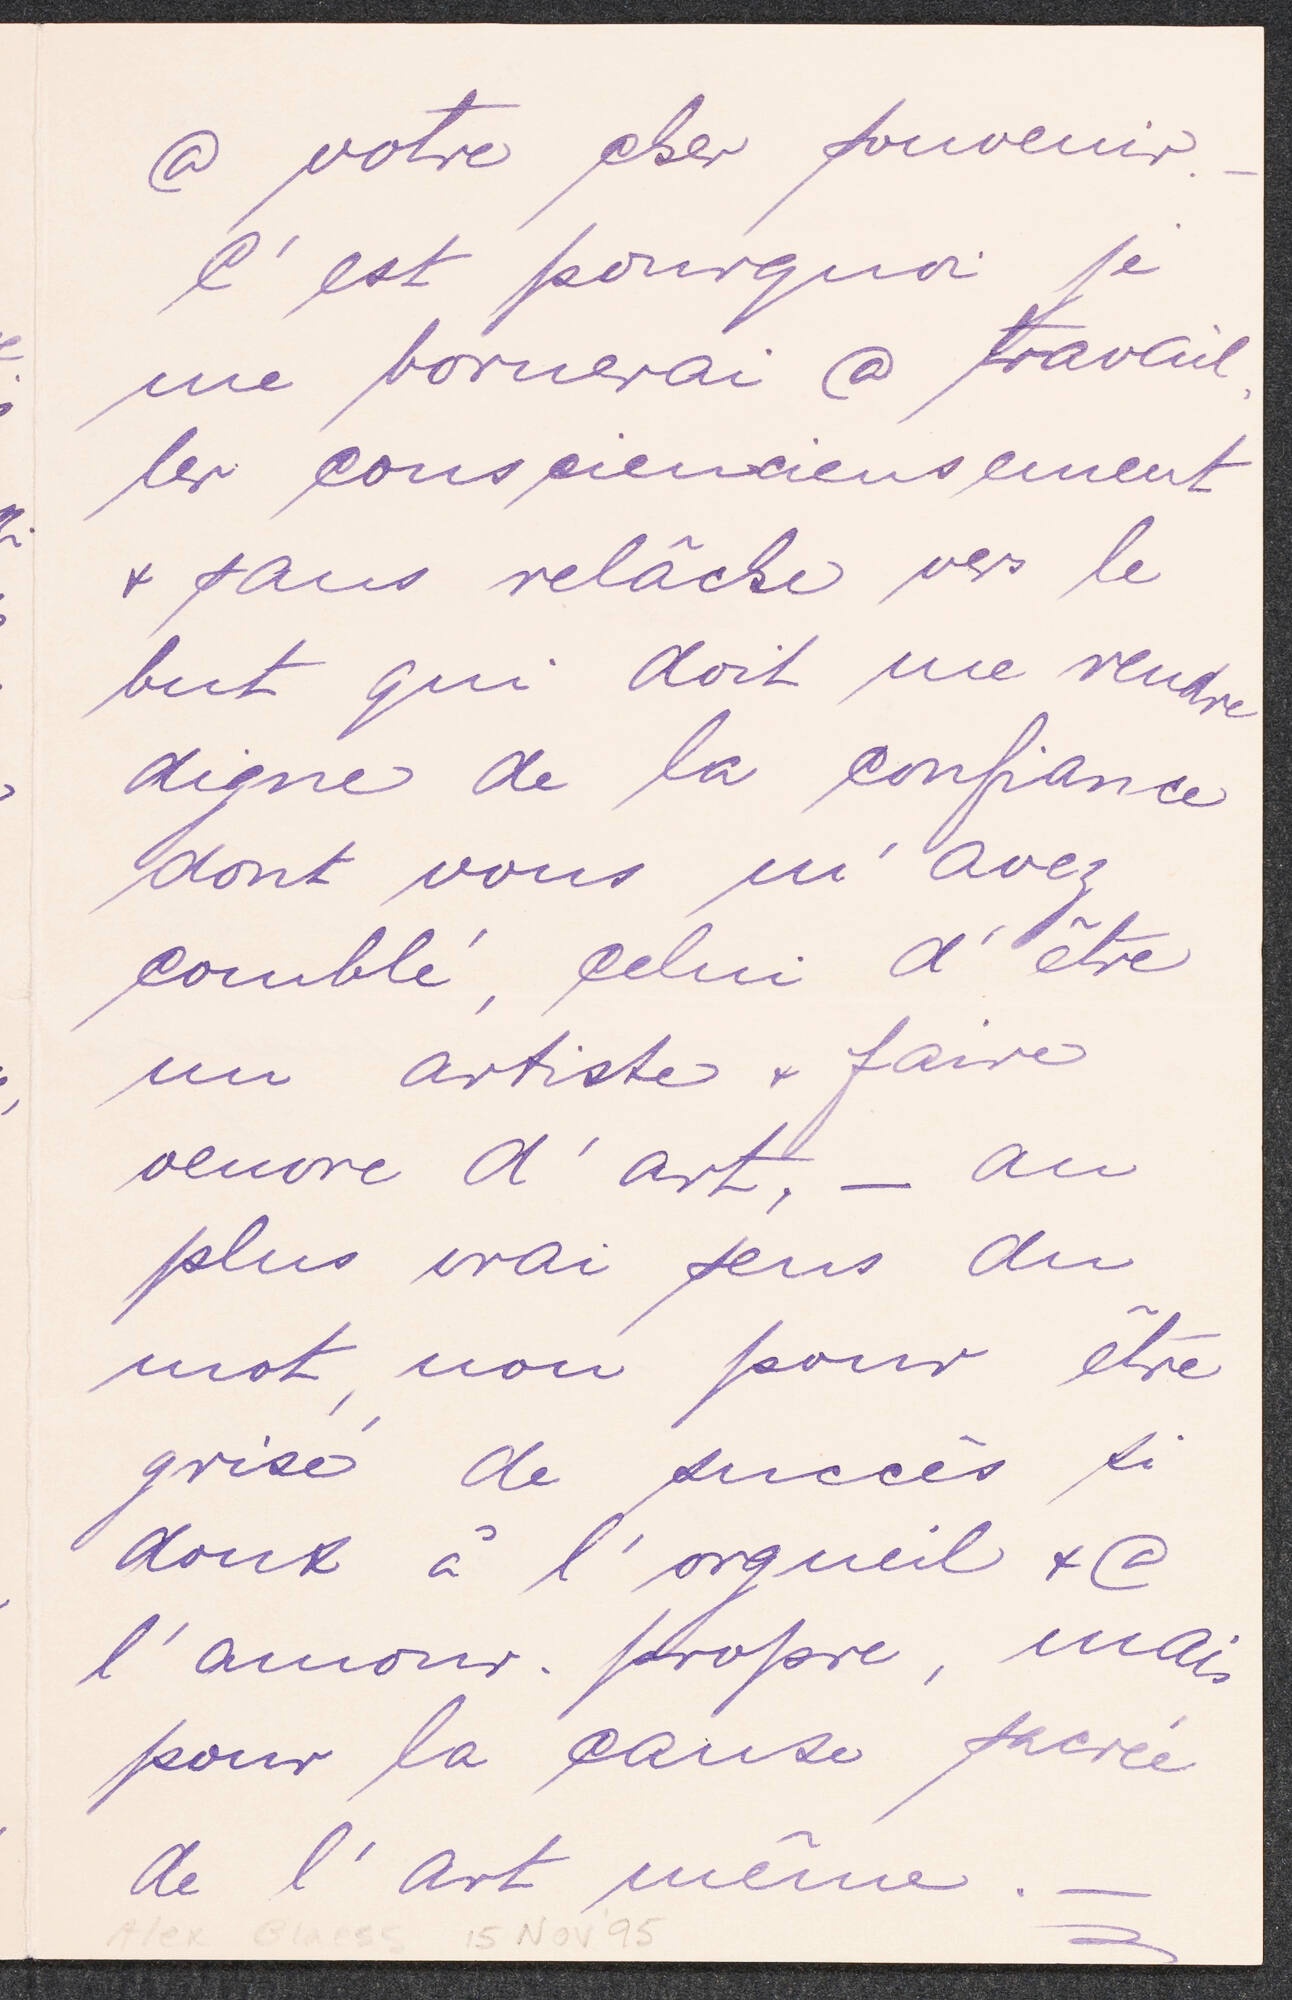 @ votre cher souvenir. —
C'est pourquoi je
me bornerai @ travail-
ler consciencieusement
& sans relâche vers le
but qui doit me rendre
digne de la confiance
dont vous m'avez
comblé, celui d'être
un artiste & faire
oeuvre d'art, — au
plus vrai sens du
mot, non pour être
grisé de succès si
doux à l'orgueil & @
l'amour-propre, mais
pour la cause sacrée
de l'art même. —
Alex Glaess 15 Nov '95